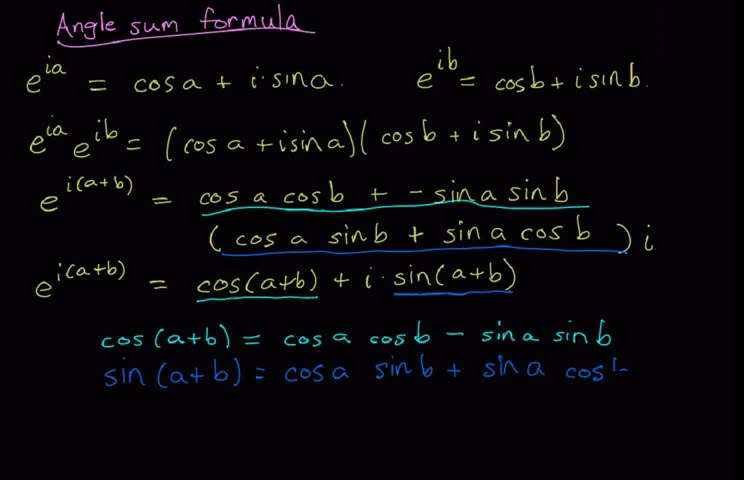 Angle sum formula
e^{ia} = cos a + i·sin a. e^{ib} = cos b + i sin b.
e^{ia} e^{ib} = (cos a + i sin a)(cos b + i sin b)
e^{i(a+b)} = cos a cos b + - sin a sin b
(cos a sin b + sin a cos b) i
e^{i(a+b)} = cos(a+b) + i · sin(a+b)
cos (a+b) = cos a cos b - sin a sin b
sin (a+b) = cos a sin b + sin a cos